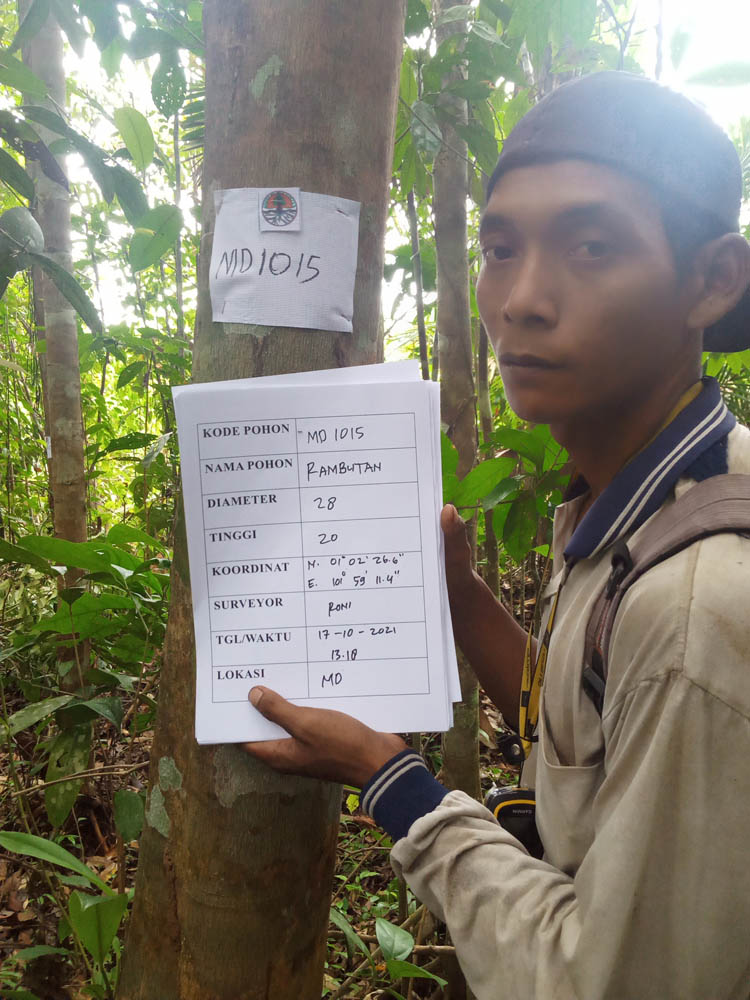 MD1015
KODE POHON MD 1015
NAMA POHON RAMBUTAN
DIAMETER 28
TINGGI 20
KOORDINAT N. 01° 02' 26.6"
E. 101° 59' 11.4"
SURVEYOR RONI
TGL/WAKTU 17-10-2021
13.18
LOKASI MD
GARMIN